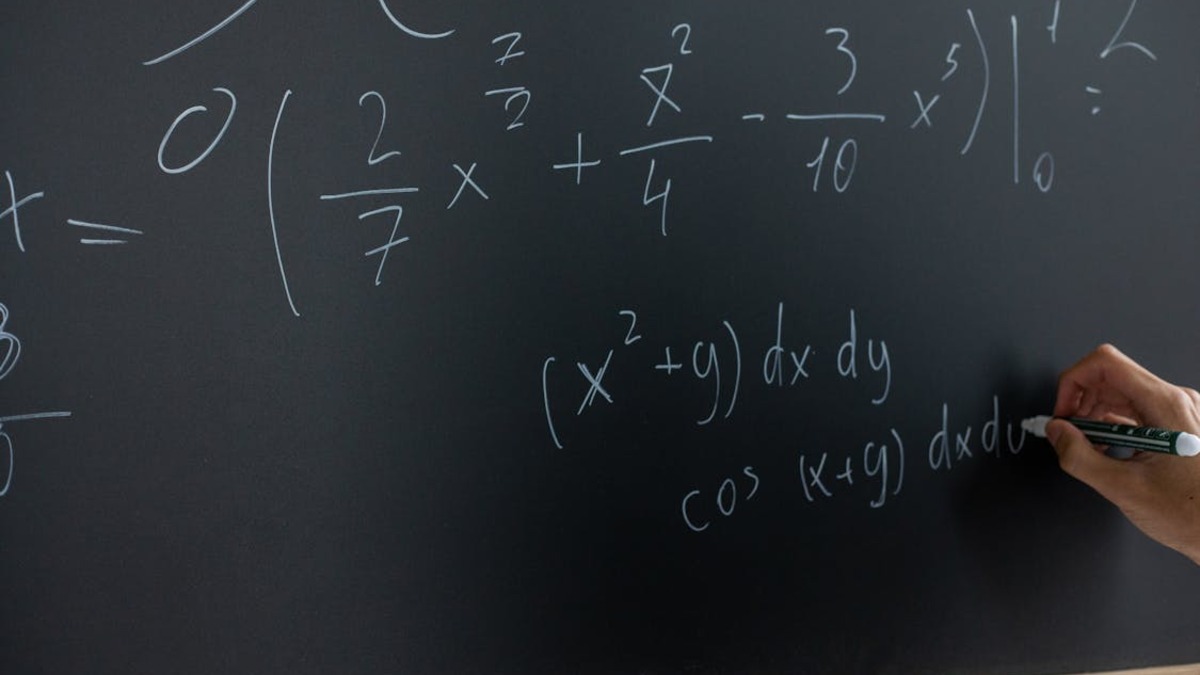 x = 0 ( 2/7 x^7/2 + x^2/4 - 3/10 x^5 ) |_0^1 =
3
(x^2 + y) dx dy
cos (x+y) dx dy